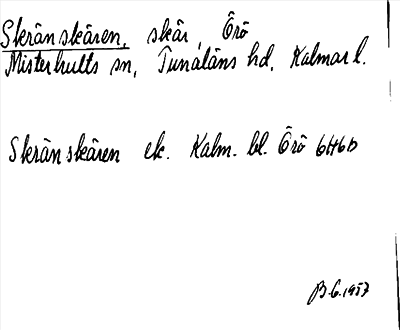 Skränskären, skär, Örö
Misterhults sn, Tunaläns hd, Kalmar l.
Skränskären ek. Kalm. bl. Örö 6H6b
B.G. 1957